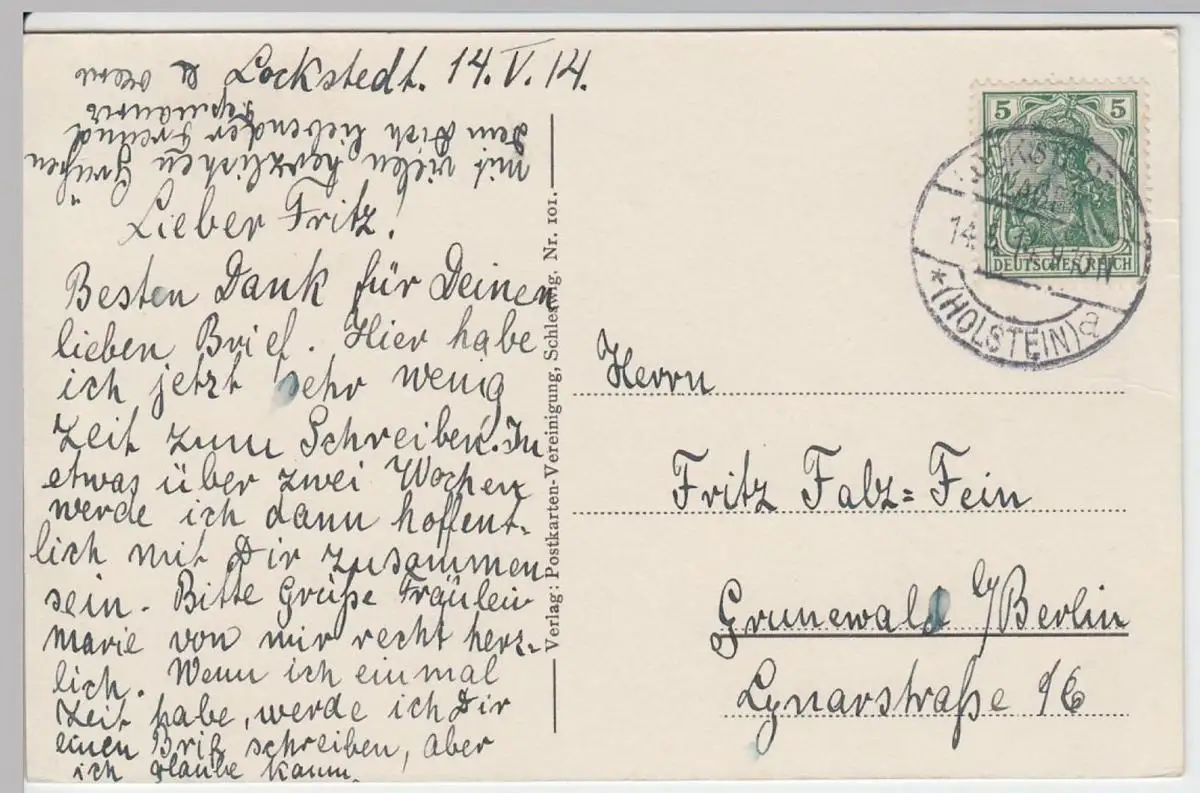 Lockstedt. 14.V.14.
Lieber Fritz!
Besten Dank für Deinen
lieben Brief. Hier habe
ich jetzt sehr wenig
Zeit zum Schreiben. In
etwas über zwei Wochen
werde ich dann hoffent-
lich mit Dir zusammen
sein. Bitte Grüße Fräulein
Marie von mir recht herz-
lich. Wenn ich einmal
Zeit habe, werde ich Dir
einen Brief schreiben, aber
ich glaube kaum.
mit vielen herzlichen Grüßen
Dein Dich liebender Freund
Verlag: Postkarten-Vereinigung, Schleswig. Nr. 101.
5 5
DEUTSCHES REICH
14.5.14. 9
*(HOLSTEIN) a
Herrn
Fritz Falz=Fein
Grunewald b/Berlin
Lynarstraße